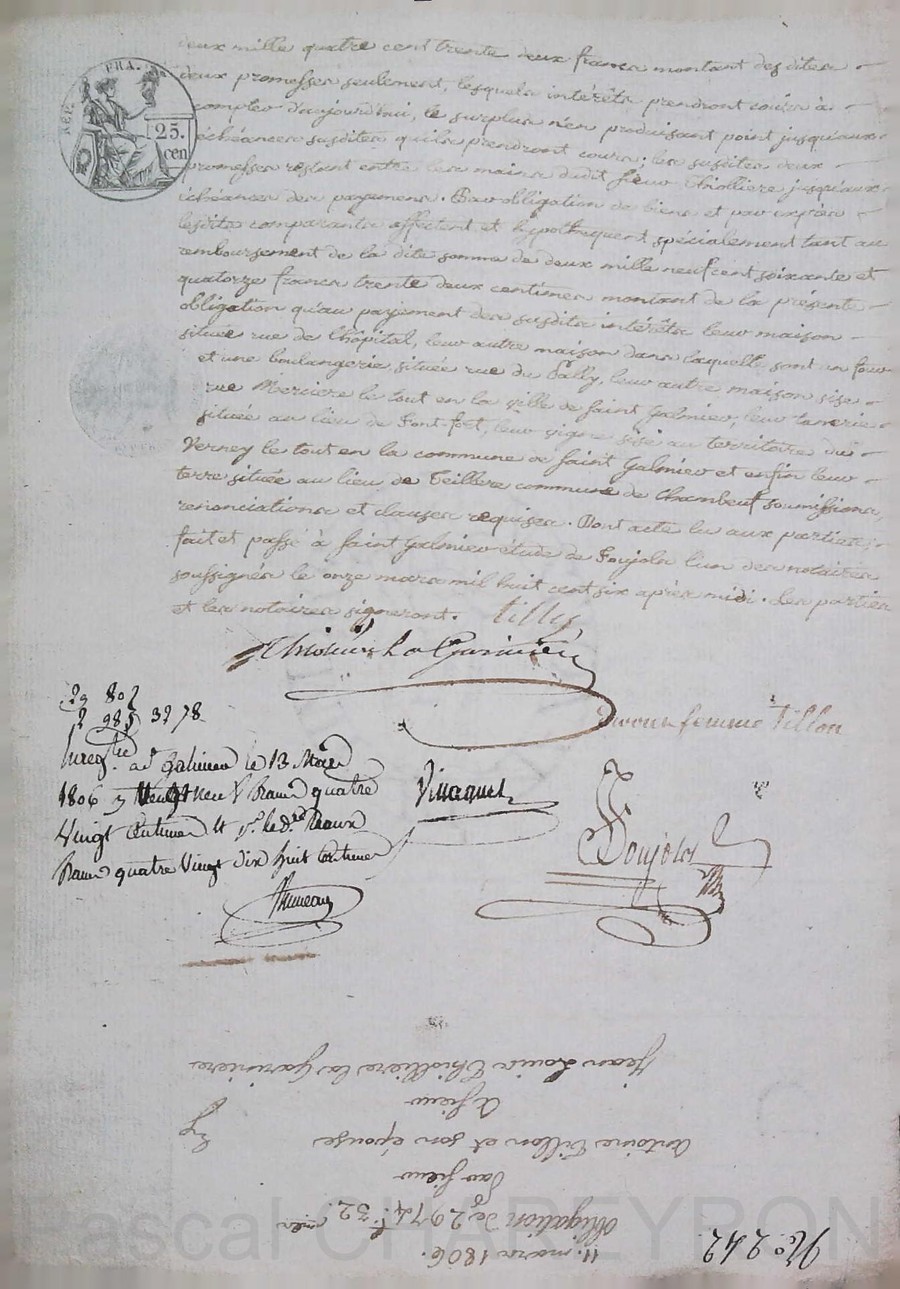 deux mille quatre cent trente deux francs montant des dites
deux promesses seulement, lesquels intérêts prendront cours à
compter d'aujourd'hui, le surplus n'en produisant point jusqu'aux
échéances susdites qu'ils prendront cours; les susdites deux
promesses restant entre les mains dudit sieur Thiolliere jusqu'aux
échéances des payemens. Par obligation de biens et par exprès
lesdits comparants affectent et hypothequent spécialement tant au
remboursement de la dite somme de deux mille neuf cent soixante et
quatorze francs trente deux centimes montant de la présente
obligation qu'au payement des susdits intérêts leur maison
située rue de l'hôpital, leur autre maison dans laquelle sont un four
et une boulangerie située rue du Sally, leur autre maison sise
rue Merciere le tout en la ville de Saint Galmier, leur tanerie
située au lieu de Font-fort, leur vigne sise au territoire du
Verney le tout en la commune de Saint Galmier et enfin leur
terre située au lieu de Teillere commune de Chambeuf soumissions,
renonciations et clauses requises. Dont acte lu aux parties;
fait et passé à Saint Galmier étude de Soujols l'un des notaires
soussignés le onze mars mil huit cent six après midi. Les parties
et les notaires signeront. tillon
Thiolliere La Garinière
femme Tillon
29 80
2 98
32 78
Enregtré à St Galmier le 13 Mars
1806 vingt neuf francs quatre
vingt centimes
francs quatre vingt dix huit centimes
Soujols
REP. FRA.
25.
cen
No. 242.
11. mars 1806.
Obligation de 2974f. 32 cmes
Par sieur
Antoine Tillon et son épouse
A sieur
Jean Louis Thiolliere la Garinière
Pascal CHAREYRON